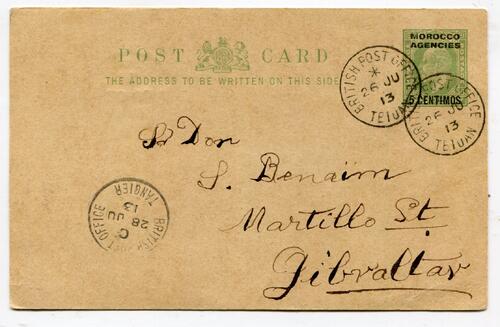 POST CARD
THE ADDRESS TO BE WRITTEN ON THIS SIDE
MOROCCO
AGENCIES
5 CENTIMOS
BRITISH POST OFFICE
*
26 JU
13
TETUAN
BRITISH POST OFFICE
26 JU
13
TETUAN
Sr Don
S. Benaim
Martillo St
Gibraltar
BRITISH POST OFFICE
C
28 JU
13
TANGIER